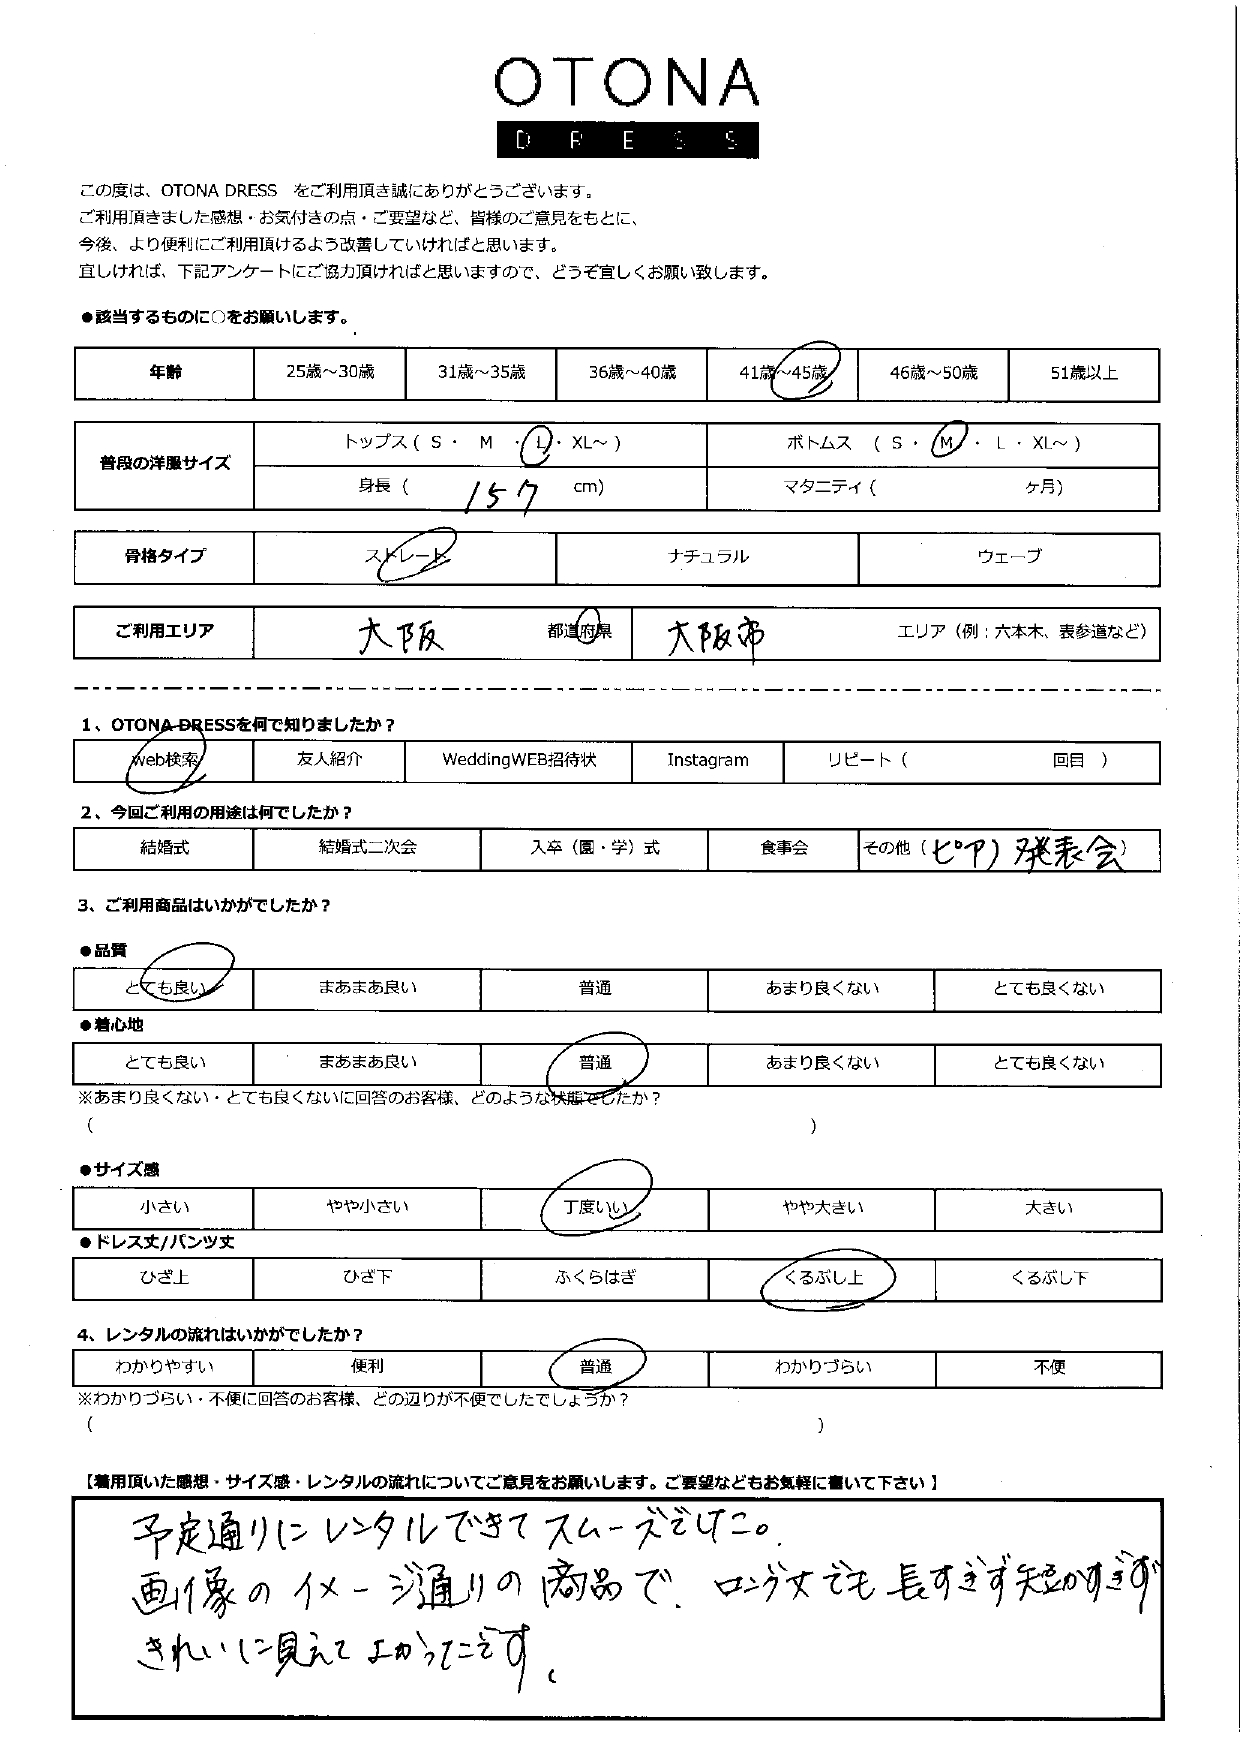 OTONA
DRESS
この度は、OTONA DRESS　をご利用頂き誠にありがとうございます。
ご利用頂きました感想・お気付きの点・ご要望など、皆様のご意見をもとに、
今後、より便利にご利用頂けるよう改善していければと思います。
宜しければ、下記アンケートにご協力頂ければと思いますので、どうぞ宜しくお願い致します。
●該当するものに○をお願いします。
年齢 25歳～30歳 31歳～35歳 36歳～40歳 41歳～45歳 46歳～50歳 51歳以上
普段の洋服サイズ トップス ( S ・ M ・ L ・ XL～ ) ボトムス ( S ・ M ・ L ・ XL～ )
身長 ( 157 cm) マタニティ ( ヶ月)
骨格タイプ ストレート ナチュラル ウェーブ
ご利用エリア 大阪 都道府県 大阪市 エリア（例：六本木、表参道など）
1、OTONA DRESSを何で知りましたか？
Web検索 友人紹介 WeddingWEB招待状 Instagram リピート（ 回目 ）
2、今回ご利用の用途は何でしたか？
結婚式 結婚式二次会 入卒（園・学）式 食事会 その他（ピア）発表会）
3、ご利用商品はいかがでしたか？
●品質
とても良い まあまあ良い 普通 あまり良くない とても良くない
●着心地
とても良い まあまあ良い 普通 あまり良くない とても良くない
※あまり良くない・とても良くないに回答のお客様、どのような状態でしたか？
( )
●サイズ感
小さい やや小さい 丁度いい やや大きい 大きい
●ドレス丈/パンツ丈
ひざ上 ひざ下 ふくらはぎ くるぶし上 くるぶし下
4、レンタルの流れはいかがでしたか？
わかりやすい 便利 普通 わかりづらい 不便
※わかりづらい・不便に回答のお客様、どの辺りが不便でしたでしょうか？
( )
【着用頂いた感想・サイズ感・レンタルの流れについてご意見をお願いします。ご要望などもお気軽に書いて下さい】
予定通りにレンタルできてスムーズでした。
画像のイメージ通りの商品で、ロング丈でも長すぎず短かすぎず
きれいに見えてよかったです。